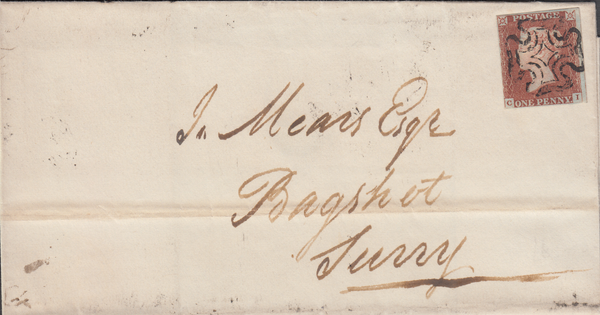 POSTAGE
C ONE PENNY I
Jn Mears Esqr
Bagshot
Surry